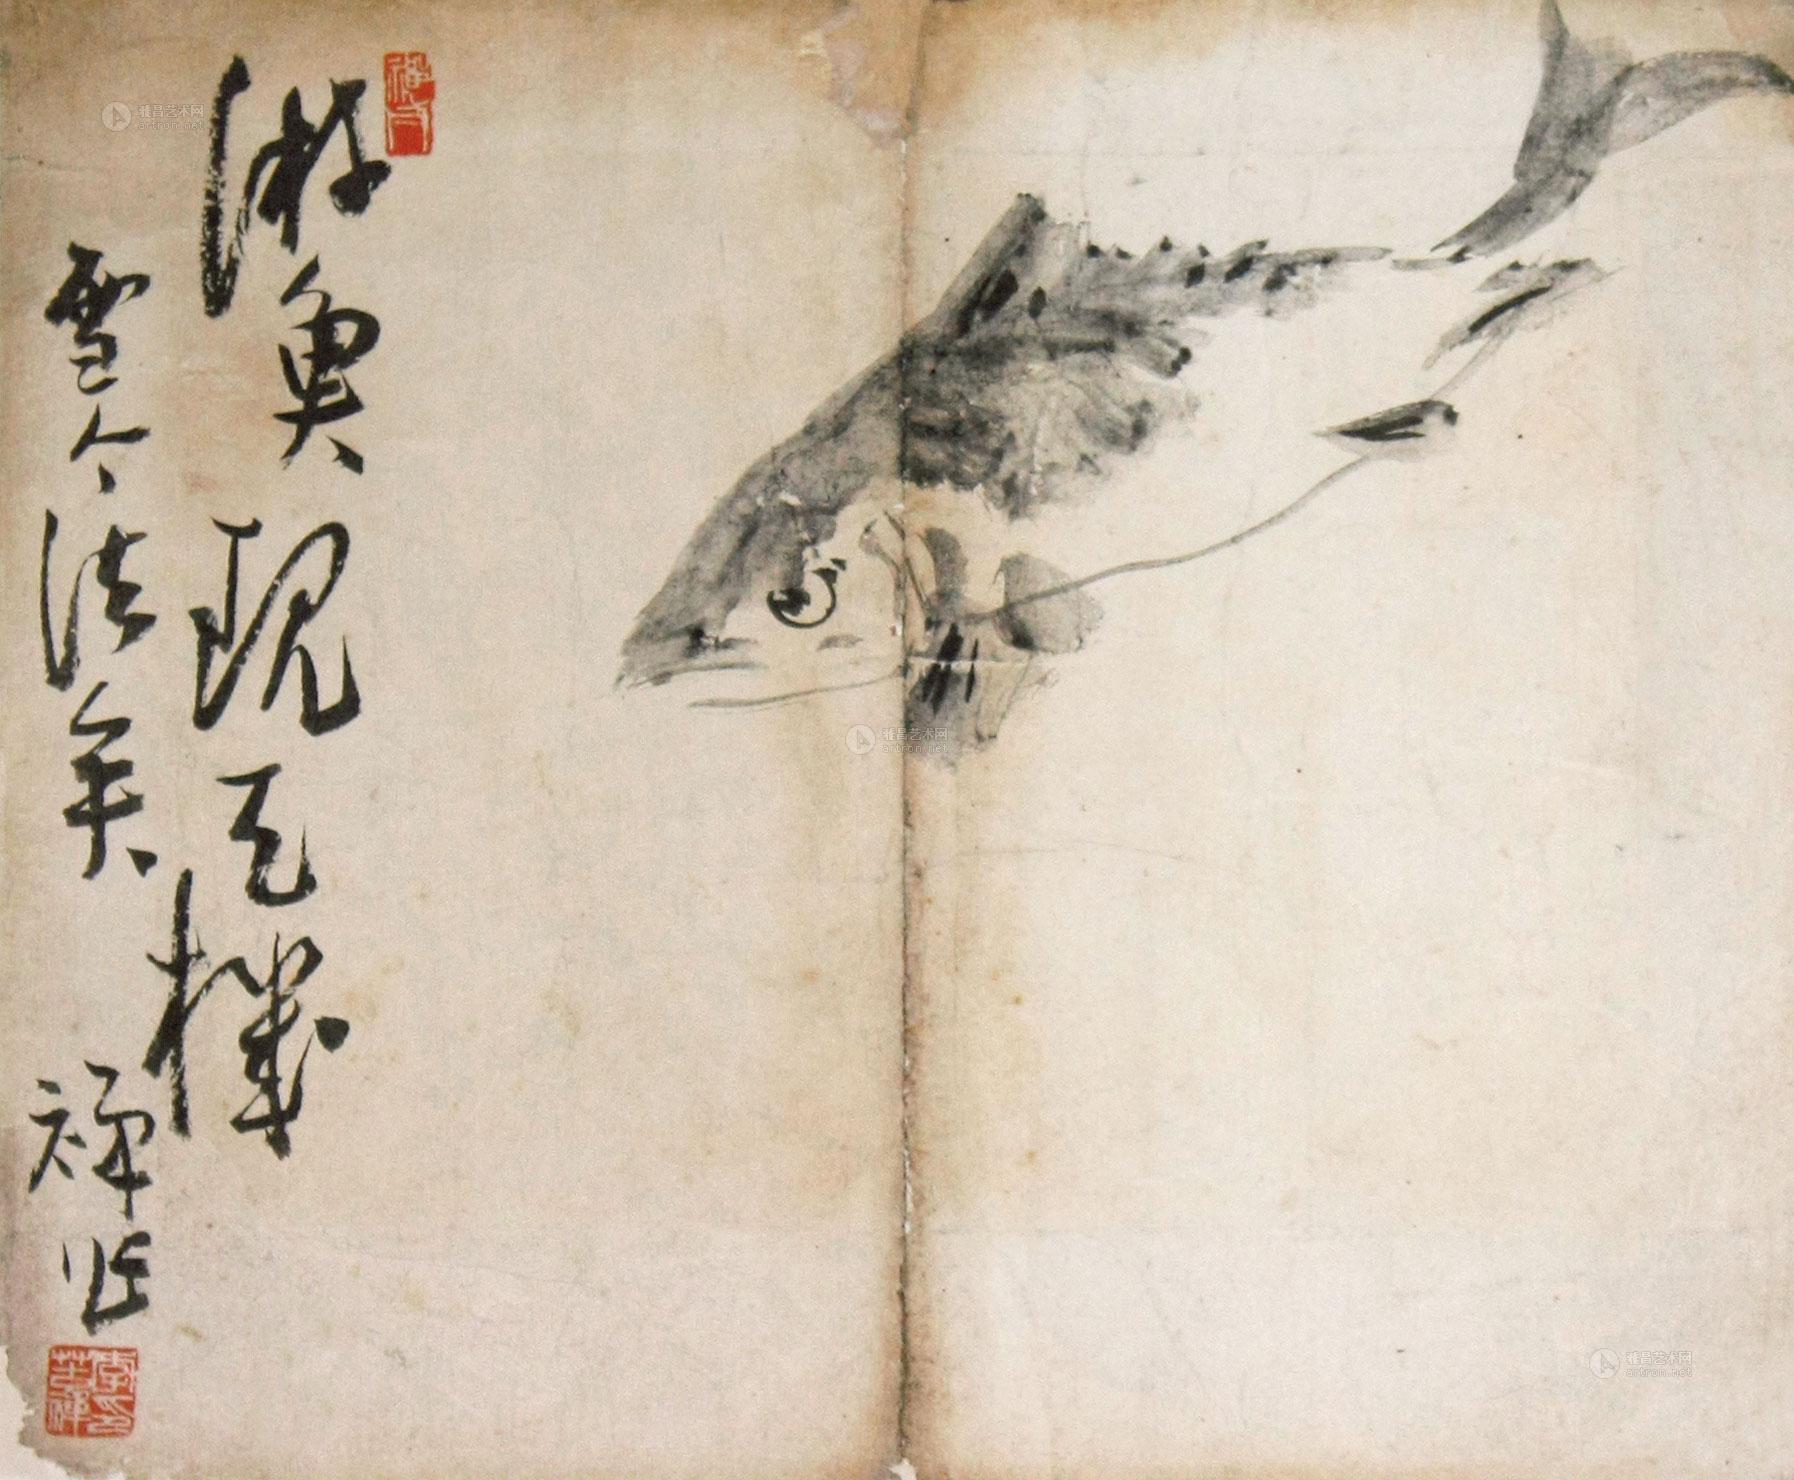 游魚現天機
雪个法矣
禪作
雅昌艺术网
artron.net
雅昌艺术网
artron.net
雅昌艺术网
artron.net